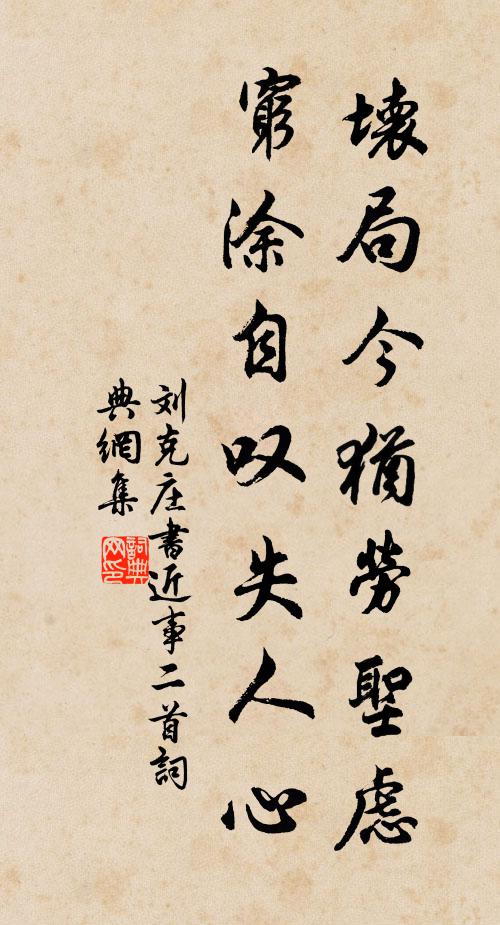 壞局今猶勞聖慮
窮涂自叹失人心
刘克庄書近事二首詞
典網集
詞典
网印